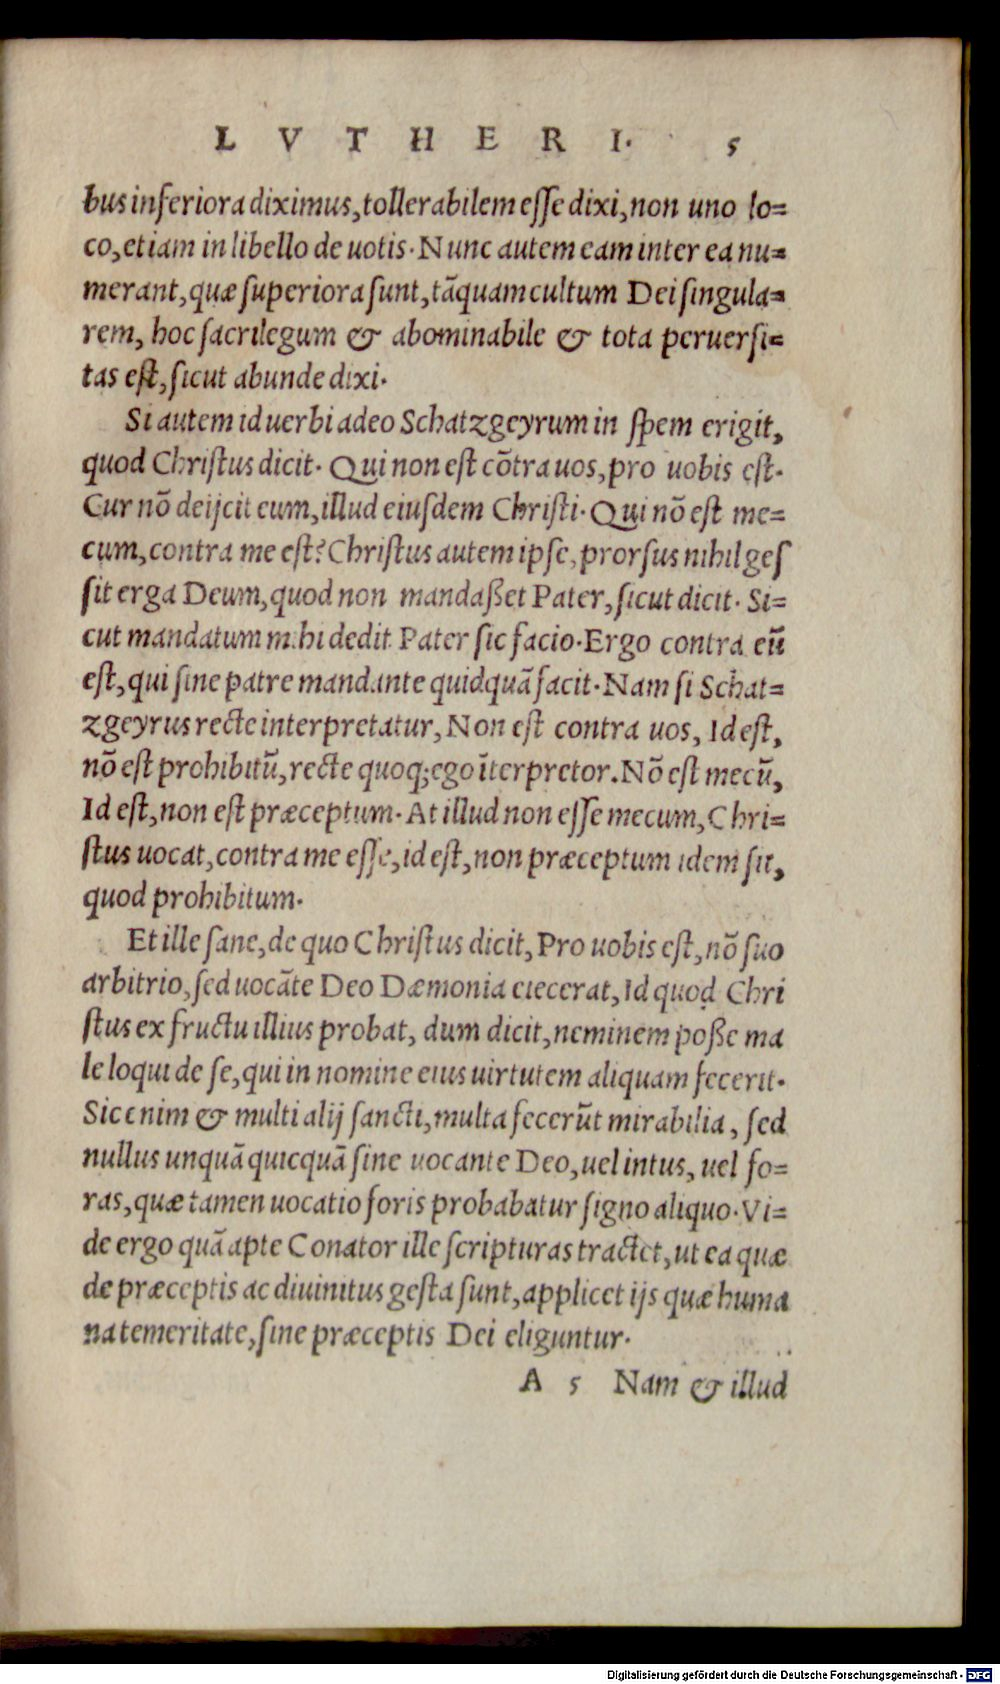 LVTHERI. 5
bus inferiora diximus, tollerabilem esse dixi, non uno lo=
co, etiam in libello de uotis. Nunc autem eam inter ea nu=
merant, quæ superiora sunt, tãquam cultum Dei singula=
rem, hoc sacrilegum & abominabile & tota peruersi=
tas est, sicut abunde dixi.
Si autem id uerbi adeo Schatzgeyrum in spem erigit,
quod Christus dicit. Qui non est cõtra uos, pro uobis est.
Cur nõ deijcit eum, illud eiusdem Christi. Qui nõ est me=
cum, contra me est? Christus autem ipse, prorsus nihil ges
sit erga Deum, quod non mandaßet Pater, sicut dicit. Si=
cut mandatum mihi dedit Pater sic facio. Ergo contra eũ
est, qui sine patre mandante quidquã facit. Nam si Schat=
zgeyrus recte interpretatur, Non est contra uos, Id est,
nõ est prohibitũ, recte quoq; ego ĩterpretor. Nõ est mecũ,
Id est, non est præceptum. At illud non esse mecum, Chri=
stus uocat, contra me esse, id est, non præceptum idem sit,
quod prohibitum.
Et ille sane, de quo Christus dicit, Pro uobis est, nõ suo
arbitrio, sed uocãte Deo Dæmonia eiecerat, Id quod Chri
stus ex fructu illius probat, dum dicit, neminem poße ma
le loqui de se, qui in nomine eius uirtutem aliquam fecerit.
Sic enim & multi alij sancti, multa fecerũt mirabilia, sed
nullus unquã quicquã sine uocante Deo, uel intus, uel fo=
ras, quæ tamen uocatio foris probabatur signo aliquo. Vi=
de ergo quã apte Conator ille scripturas tractet, ut ea quæ
de præceptis ac diuinitus gesta sunt, applicet ijs quæ huma
na temeritate, sine præceptis Dei eliguntur.
A 5 Nam & illud
Digitalisierung gefördert durch die Deutsche Forschungsgemeinschaft - DFG